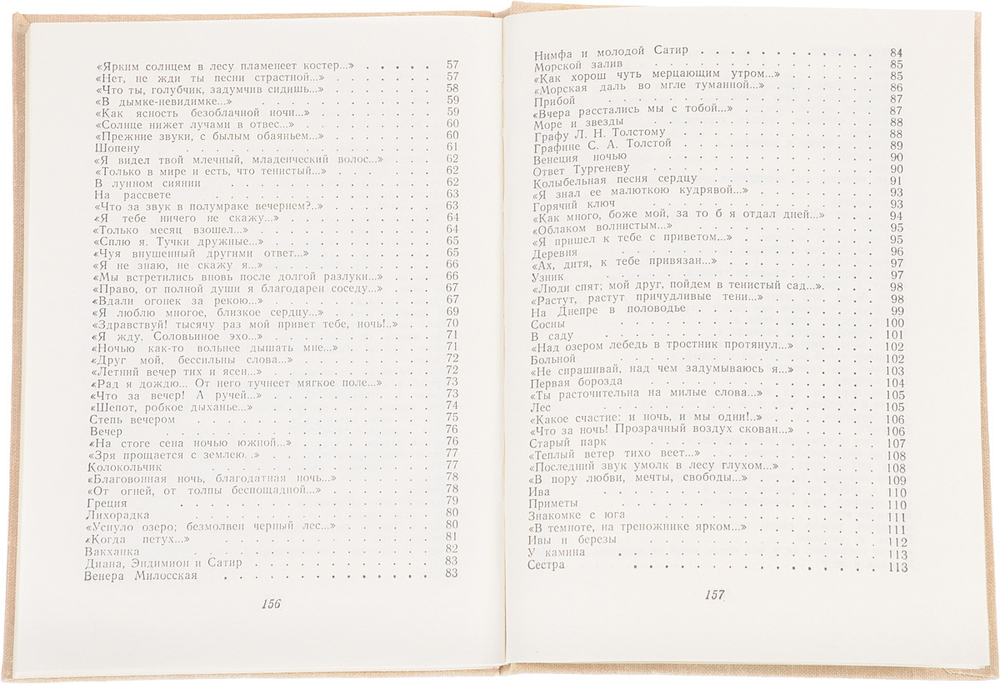 «Ярким солнцем в лесу пламенеет костер...» . . . . . . 57
«Нет, не жди ты песни страстной...» . . . . . . . 57
«Что ты, голубчик, задумчив сидишь...» . . . . . . . 58
«В дымке-невидимке...» . . . . . . . . . . . 59
«Как ясность безоблачной ночи...» . . . . . . . . 59
«Солнце нижет лучами в отвес...» . . . . . . . . 60
«Прежние звуки, с былым обаяньем...» . . . . . . . 60
Шопену . . . . . . . . . . . . . . 61
«Я видел твой млечный, младенческий волос...» . . . . . 62
«Только в мире и есть, что тенистый...» . . . . . . . 62
В лунном сиянии . . . . . . . . . . . . 62
На рассвете . . . . . . . . . . . . . 63
«Что за звук в полумраке вечернем?..» . . . . . . . 63
«Я тебе ничего не скажу...» . . . . . . . . . . 64
«Только месяц взошел...» . . . . . . . . . . . 64
«Сплю я. Тучки дружные...» . . . . . . . . . . 65
«Чуя внушенный другими ответ...» . . . . . . . . 65
«Я не знаю, не скажу я...» . . . . . . . . . . 66
«Мы встретились вновь после долгой разлуки...» . . . . 66
«Право, от полной души я благодарен соседу...» . . . . 67
«Вдали огонек за рекою...» . . . . . . . . . . 67
«Я люблю многое, близкое сердцу...» . . . . . . . . 69
«Здравствуй! тысячу раз мой привет тебе, ночь!..» . . . 70
«Я жду, Соловьиное эхо...» . . . . . . . . . . 71
«Ночью как-то вольнее дышать мне...» . . . . . . . 71
«Друг мой, бессильны слова...» . . . . . . . . . 72
«Летний вечер тих и ясен...» . . . . . . . . . . 72
«Рад я дождю... От него тучнеет мягкое поле...» . . . . 73
«Что за вечер! А ручей...» . . . . . . . . . . 73
«Шепот, робкое дыханье...» . . . . . . . . . . 74
Степь вечером . . . . . . . . . . . . . 75
Вечер . . . . . . . . . . . . . . . 76
«На стоге сена ночью южной...» . . . . . . . . . 76
«Зря прощается с землею...» . . . . . . . . . . 77
Колокольчик . . . . . . . . . . . . . 77
«Благовонная ночь, благодатная ночь...» . . . . . . . 78
«От огней, от толпы беспощадной...» . . . . . . . . 78
Греция . . . . . . . . . . . . . . 79
Лихорадка . . . . . . . . . . . . . . 80
«Уснуло озеро; безмолвен черный лес...» . . . . . . . 80
«Когда петух...» . . . . . . . . . . . . . 81
Вакханка . . . . . . . . . . . . . . 82
Диана, Эндимион и Сатир . . . . . . . . . . 83
Венера Милосская . . . . . . . . . . . . 83
156
Нимфа и молодой Сатир . . . . . . . . . . . 84
Морской залив . . . . . . . . . . . . . 85
«Как хорош чуть мерцающим утром...» . . . . . . . 85
«Морская даль во мгле туманной...» . . . . . . . . 86
Прибой . . . . . . . . . . . . . . 87
«Вчера расстались мы с тобой...» . . . . . . . . . 87
Море и звезды . . . . . . . . . . . . . 88
Графу Л. Н. Толстому . . . . . . . . . . . 88
Графине С. А. Толстой . . . . . . . . . . . 89
Венеция ночью . . . . . . . . . . . . . 90
Ответ Тургеневу . . . . . . . . . . . . 90
Колыбельная песня сердцу . . . . . . . . . . 91
«Я знал ее малюткою кудрявой...» . . . . . . . . 93
Горячий ключ . . . . . . . . . . . . . 93
«Как много, боже мой, за то б я отдал дней...» . . . . 94
«Облаком волнистым...» . . . . . . . . . . . 95
«Я пришел к тебе с приветом...» . . . . . . . . . 95
Деревня . . . . . . . . . . . . . . 96
«Ах, дитя, к тебе привязан...» . . . . . . . . . . 97
Узник . . . . . . . . . . . . . . . 97
«Люди спят; мой друг, пойдем в тенистый сад...» . . . . 98
«Растут, растут причудливые тени...» . . . . . . . . 98
На Днепре в половодье . . . . . . . . . . . 99
Сосны . . . . . . . . . . . . . . . 100
В саду . . . . . . . . . . . . . . . 101
«Над озером лебедь в тростник протянул...» . . . . . . 102
Больной . . . . . . . . . . . . . . 102
«Не спрашивай, над чем задумываюсь я...» . . . . . . 103
Первая борозда . . . . . . . . . . . . . 104
«Ты расточительна на милые слова...» . . . . . . . 105
Лес . . . . . . . . . . . . . . . . 105
«Какое счастие: и ночь, и мы одни!..» . . . . . . . 106
«Что за ночь! Прозрачный воздух скован...» . . . . . 106
Старый парк . . . . . . . . . . . . . 107
«Теплый ветер тихо веет...» . . . . . . . . . . 108
«Последний звук умолк в лесу глухом...» . . . . . . 108
«В пору любви, мечты, свободы...» . . . . . . . . 109
Ива . . . . . . . . . . . . . . . . 110
Приметы . . . . . . . . . . . . . . 110
Знакомке с юга . . . . . . . . . . . . . 111
«В темноте, на треножнике ярком...» . . . . . . . . 111
Ивы и березы . . . . . . . . . . . . . 112
У камина . . . . . . . . . . . . . . 113
Сестра . . . . . . . . . . . . . . . 113
157